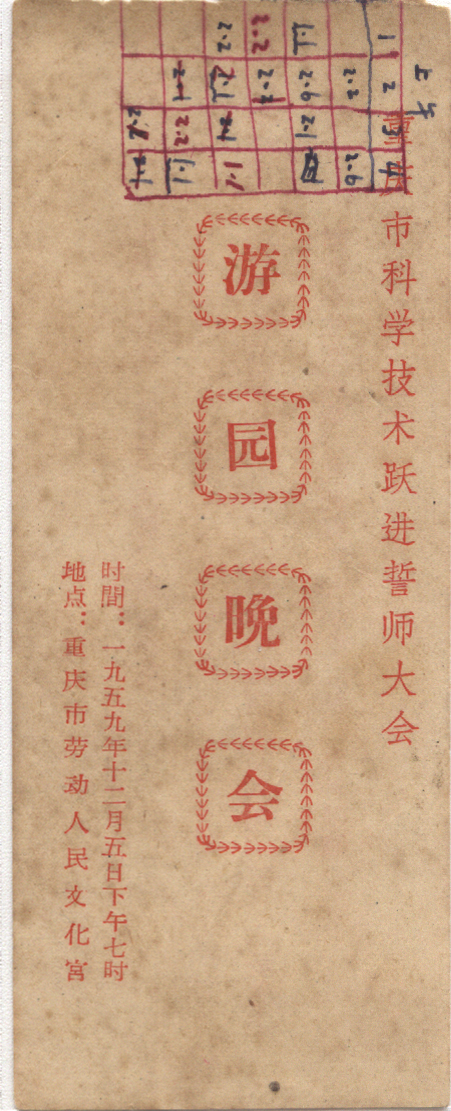 上午
1 2 3 4
重庆市科学技术跃进誓师大会
游园晚会
时間：一九五九年十二月五日下午七时
地点：重庆市劳动人民文化宮